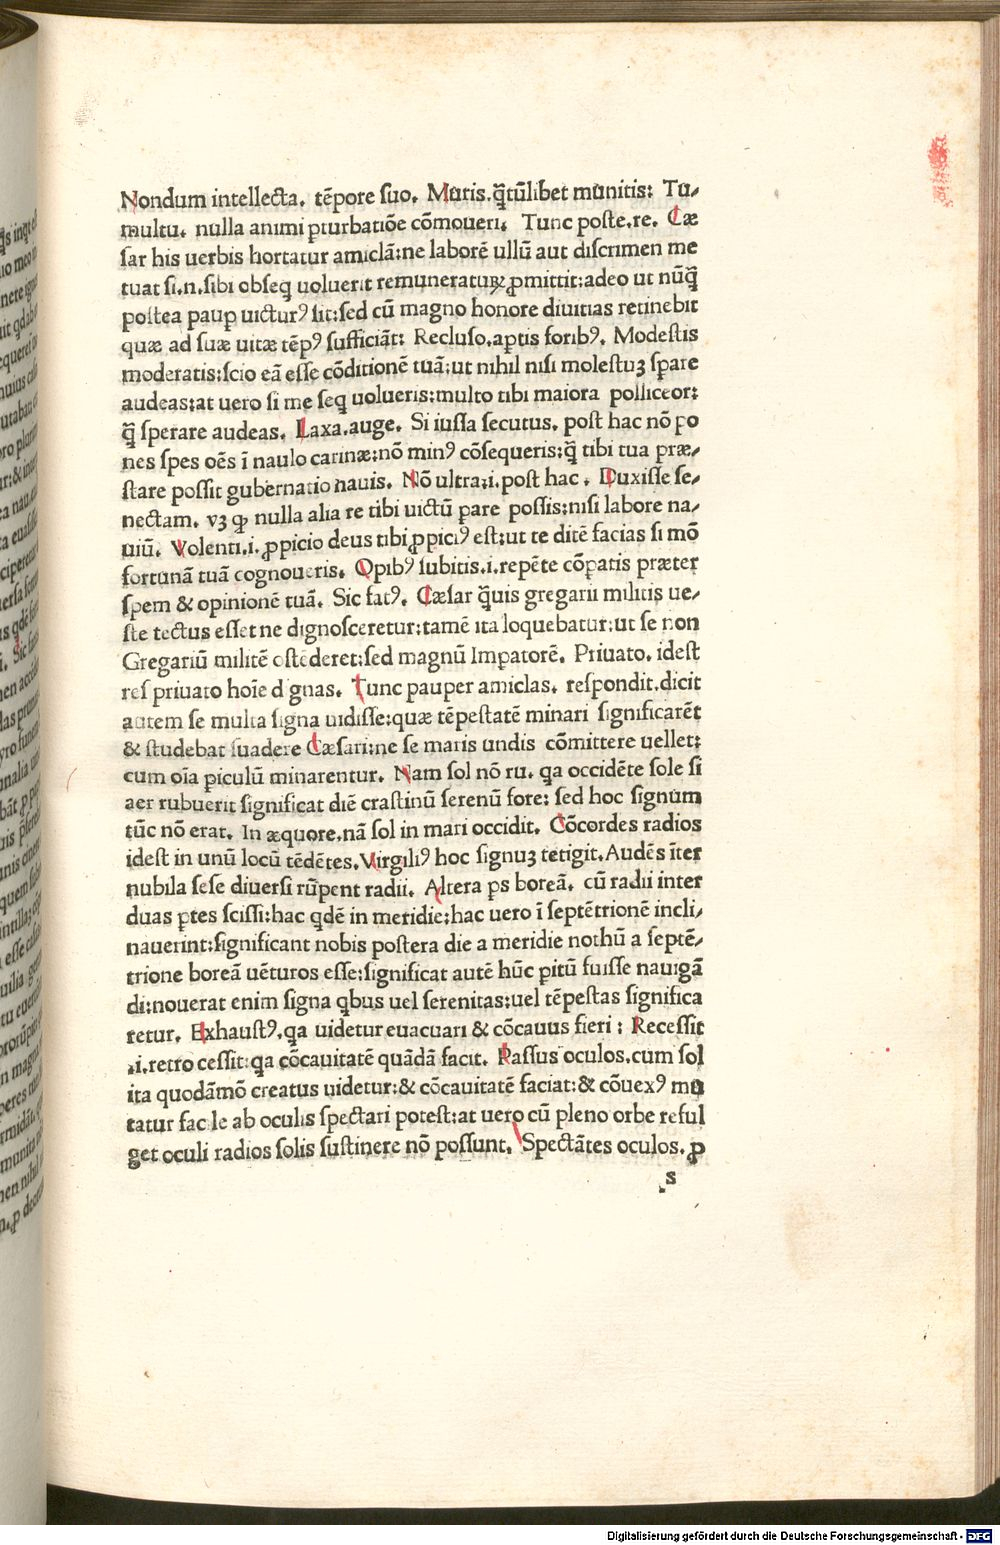 Nondum intellecta. tẽpore ſuo. Muris.q̃tũlibet munitis: Tu⸗
multu. nulla animi ꝑturbatiõe cõmoueri. Tunc poſte.re. Cæ
ſar his uerbis hortatur amiclã:ne laborẽ ullũ aut diſcrimen me
tuat ſi.n.ſibi obſeq̃ uoluerit remuneraturꝫ ꝓmittit:adeo ut nũq̃
poſtea paup uicturꝰ ſit:ſed cũ magno honore diuitias retinebit
quæ ad ſuæ uitæ tẽpꝰ ſufficiãt: Recluſo.aꝑtis foribꝰ. Modeſtis
moderatis:ſcio eã eſſe cõditionẽ tuã:ut nihil niſi moleſtuꝫ ſpare
audeas:at uero ſi me ſeq uolueris:multo tibi maiora polliceor:
q̃ ſperare audeas. Laxa.auge. Si iuſſa ſecutus. poſt hac nõ po
nes ſpes oẽs ĩ naulo carinæ:nõ minꝰ cõſequeris:q̃ tibi tua præ⸗
ſtare poſſit gubernatio nauis. Nõ ultra:i.poſt hac. Duxiſſe ſe⸗
nectam. vꝫ ꝙ nulla alia re tibi uictũ pare poſſis:niſi labore na⸗
uiũ. Volenti.i.ꝓpicio deus tibi ꝓpiciꝰ eſt:ut te ditẽ facias ſi mõ
fortunã tuã cognoueris. Opibꝰ ſubitis.i.repẽte cõꝑatis præter
ſpem & opinionẽ tuã. Sic fatꝰ. Cæſar q̃uis gregarii militis ue⸗
ſte tectus eſſet ne dignoſceretur:tamẽ ita loquebatur:ut ſe non
Gregariũ militẽ oſtẽderet:ſed magnũ Imꝑatorẽ. Priuato. ideſt
reſ priuato hoĩe dignas. Tunc pauper amiclas. reſpondit.dicit
autem ſe multa ſigna uidiſſe:quæ tẽpeſtatẽ minari ſignificarẽt
& ſtudebat ſuadere Cæſari:ne ſe maris undis cõmittere uellet:
cum oĩa piculũ minarentur. Nam ſol nõ ru. qa occidẽte ſole ſi
aer rubuerit ſignificat diẽ craſtinũ ſerenũ fore: ſed hoc ſignum
tũc nõ erat. In æquore.nã ſol in mari occidit. Cõcordes radios
ideſt in unũ locũ tẽdẽtes.Virgiliꝰ hoc ſignuꝫ tetigit.Audẽs ĩter
nubila ſeſe diuerſi rũpent radii. Altera ꝑs boreã. cũ radii inter
duas ꝑtes ſciſſi:hac qdẽ in meridie:hac uero ĩ ſeptẽtrionẽ incli⸗
nauerint:ſignificant nobis poſtera die a meridie nothũ a ſeptẽ⸗
trione boreã uẽturos eſſe:ſignificat autẽ hũc pitũ fuiſſe nauigã
di:nouerat enim ſigna qbus uel ſerenitas:uel tẽpeſtas ſignifica
retur. Exhauſtꝰ.qa uidetur euacuari & cõcauus fieri: Receſſit
.i.retro ceſſit:qa cõcauitatẽ quãdã facit. Paſſus oculos.cum ſol
ita quodãmõ creatus uidetur:& cõcauitatẽ faciat:& cõuexꝰ mu
tatur facile ab oculis ſpectari poteſt:at uero cũ pleno orbe reful
get oculi radios ſolis ſuſtinere nõ poſſunt. Spectãtes oculos. ꝓ
s
Digitalisierung gefördert durch die Deutsche Forschungsgemeinschaft - DFG